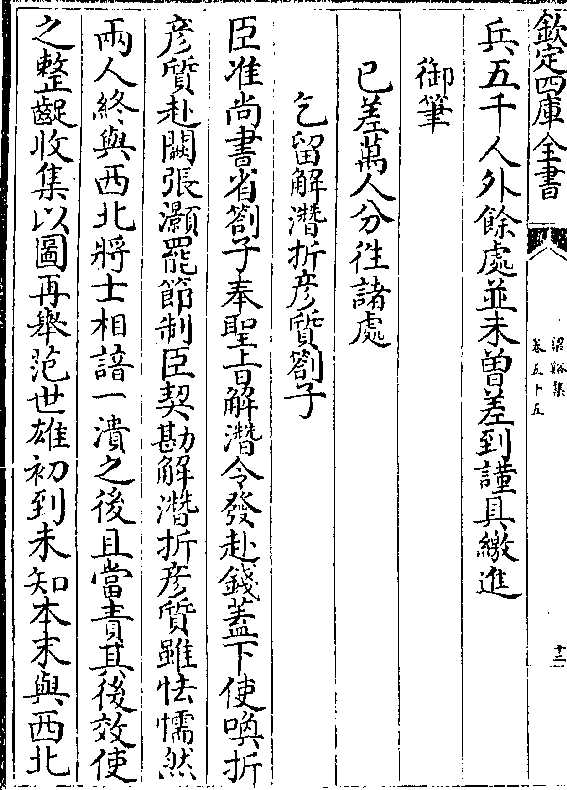 欽定四庫全書
梁谿集
卷五十五
十三
兵五千人外餘處並未曾差到謹具繳進
御筆
已差萬人分往諸處
乞留解潛折彥質劄子
臣准尚書省劄子奉聖旨解潛令發赴錢蓋下使喚折
彥質赴闕張灝罷節制臣契勘解潛折彥質雖怯懦然
兩人終與西北將士相諳一潰之後且當責其後效使
之整齪收集以圖再舉范世雄初到未知本末與西北